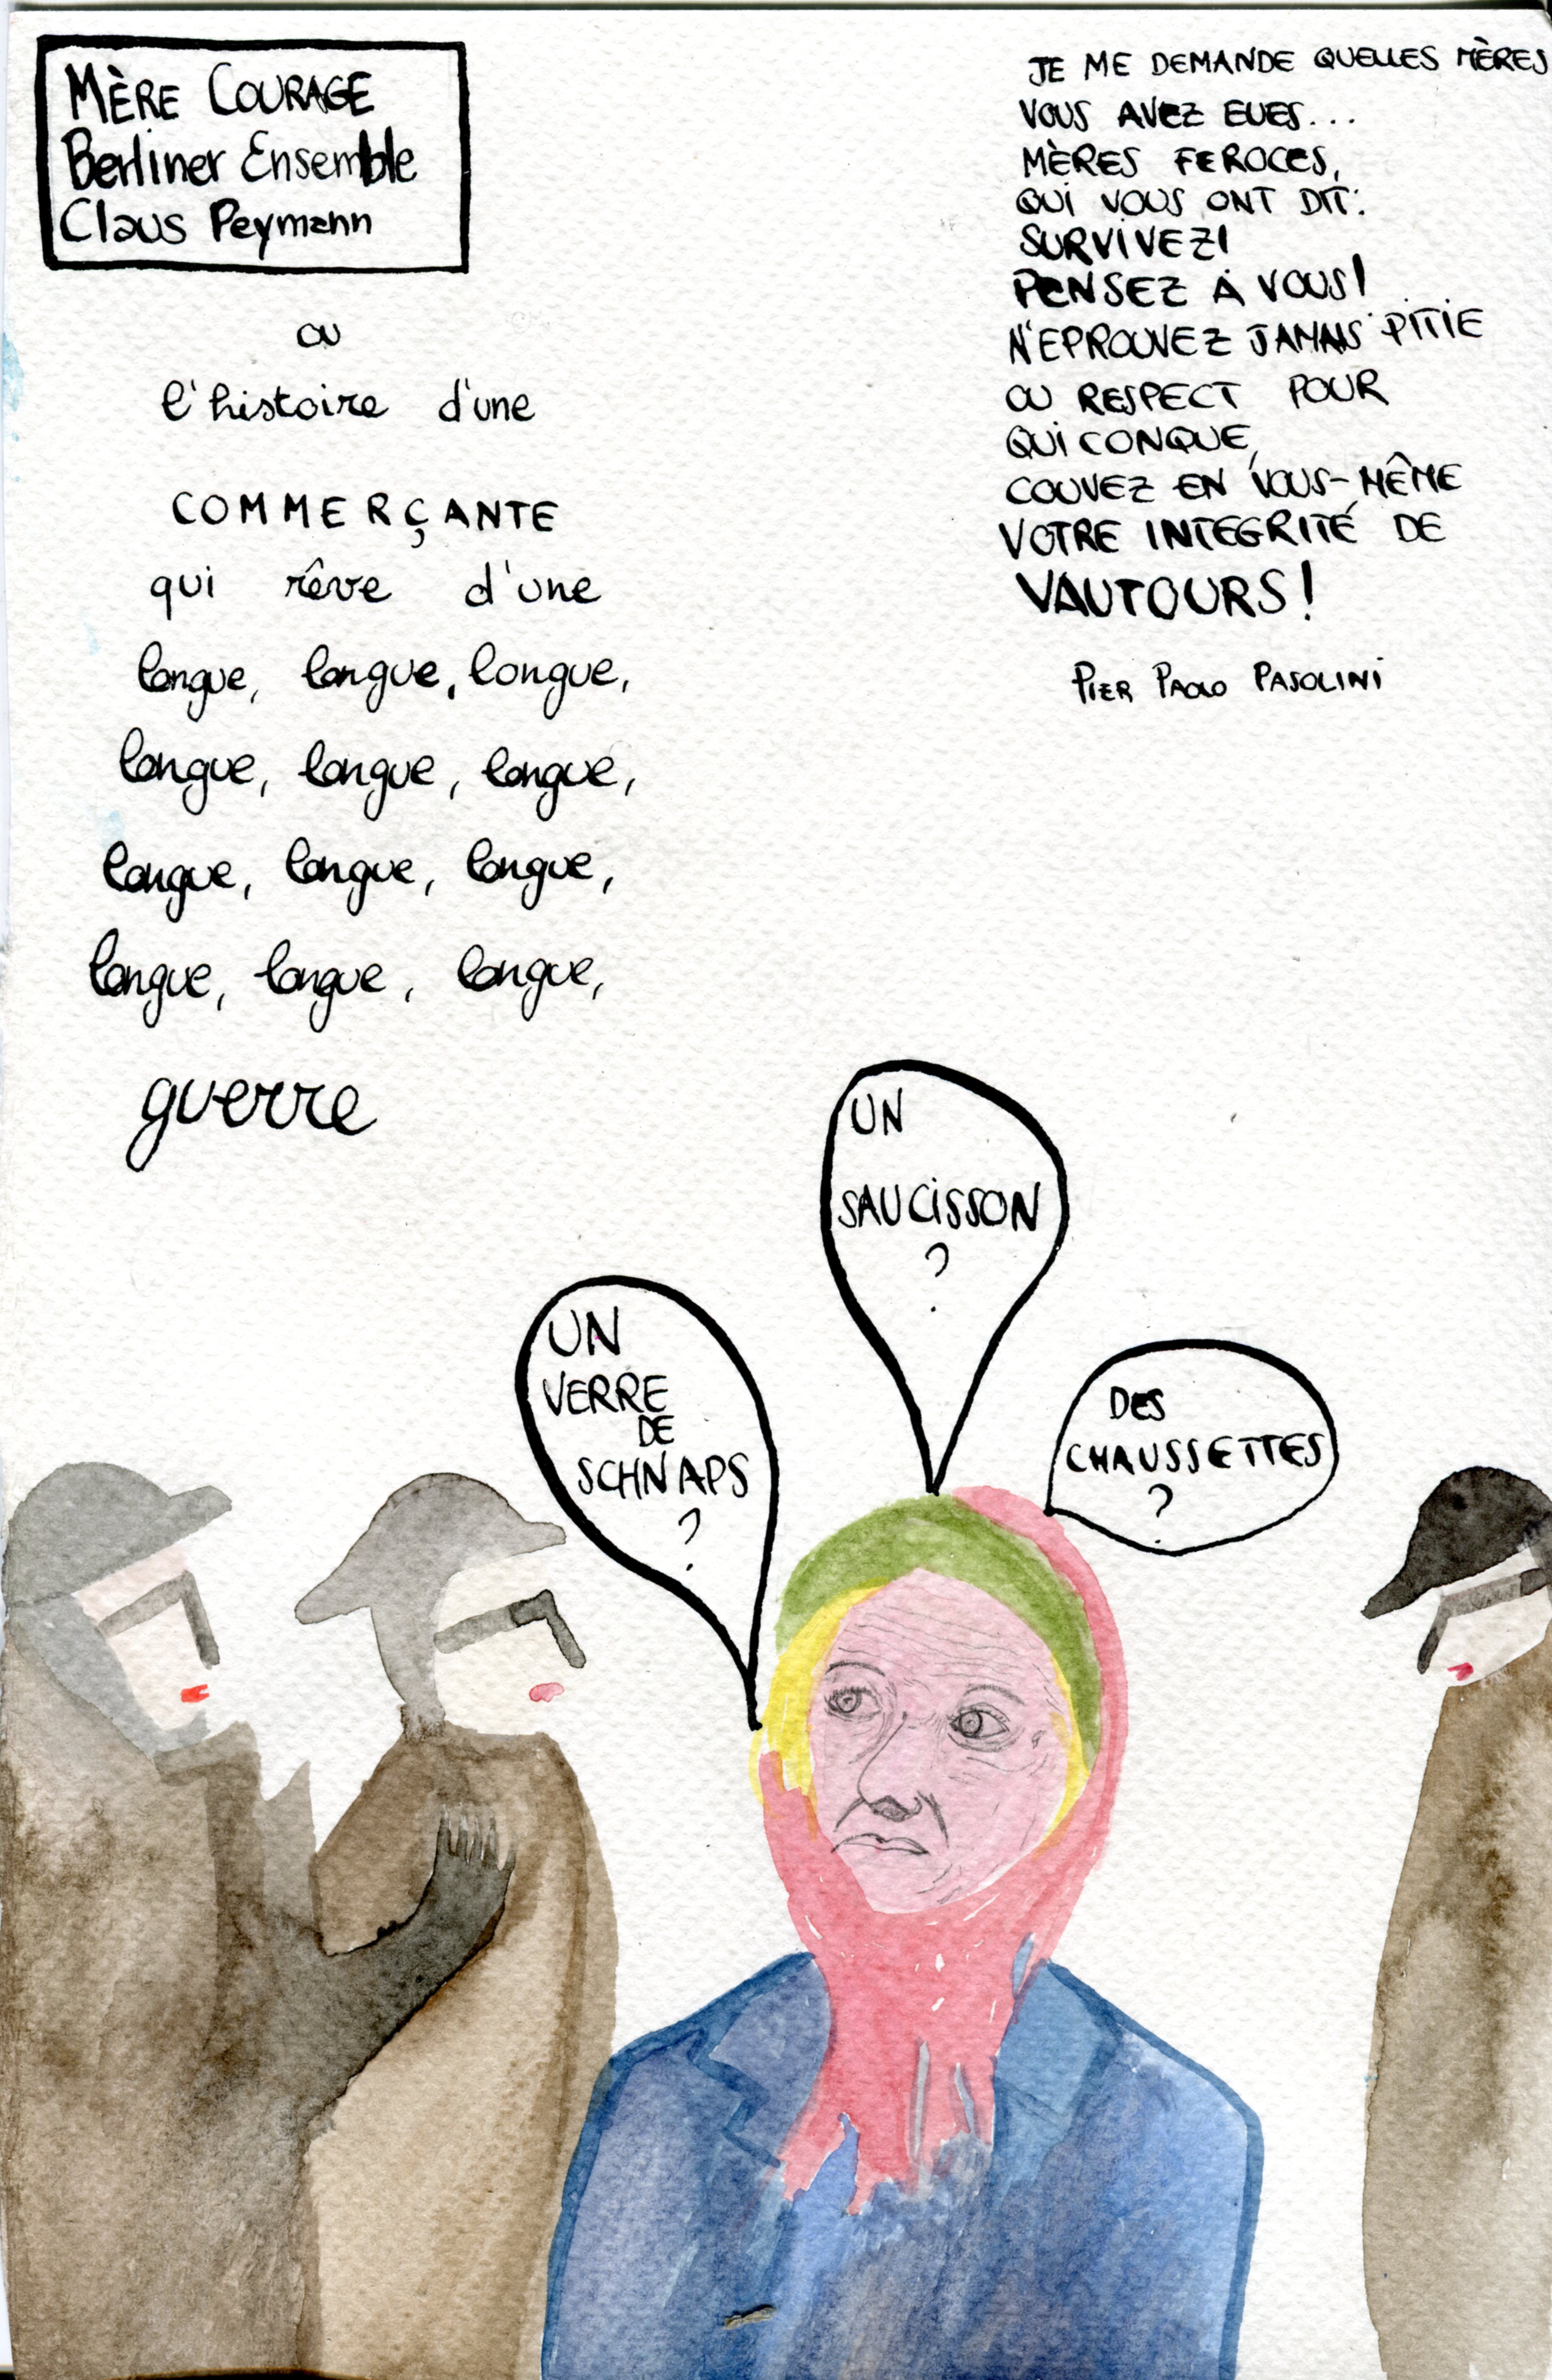 MÈRE COURAGE
Berliner Ensemble
Claus Peymann
ou
l'histoire d'une
COMMERÇANTE
qui rêve d'une
longue, longue, longue,
longue, longue, longue,
longue, longue, longue,
longue, longue, longue,
guerre
JE ME DEMANDE QUELLES MÈRES
VOUS AVEZ EUES...
MÈRES FEROCES,
QUI VOUS ONT DIT:
SURVIVEZ!
PENSEZ À VOUS!
N'EPROUVEZ JAMAIS PITIE
OU RESPECT POUR
QUICONQUE,
COUVEZ EN VOUS-MÊME
VOTRE INTEGRITÉ DE
VAUTOURS!
PIER PAOLO PASOLINI
UN
SAUCISSON
?
UN
VERRE
DE
SCHNAPS
?
DES
CHAUSSETTES
?